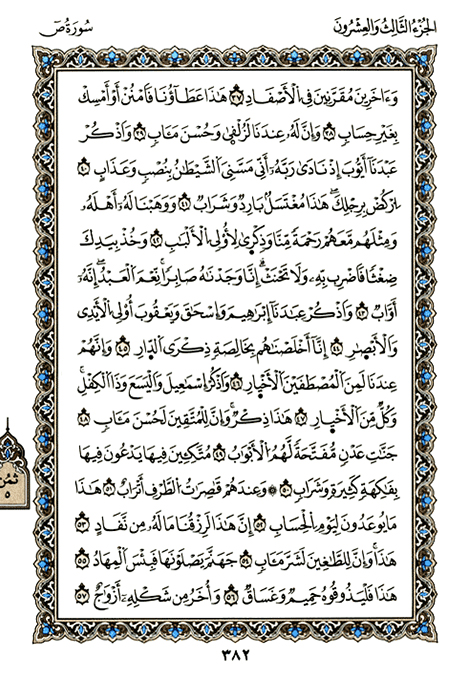 سُورَةُ صٓ
الجُزْءُ الثَّالِثُ وَالعِشْرُونَ
وَءَاخَرِينَ مُقَرَّنِينَ فِي الْأَصْفَادِ ٣٧ هَٰذَا عَطَآؤُنَا فَامْنُنْ أَوْ أَمْسِكْ
بِغَيْرِ حِسَابٍ ٣٨ وَإِنَّ لَهُۥ عِندَنَا لَزُلْفَىٰ وَحُسْنَ مَـَٔابٍ ٣٩ وَاذْكُرْ
عَبْدَنَآ أَيُّوبَ إِذْ نَادَىٰ رَبَّهُۥٓ أَنِّي مَسَّنِيَ الشَّيْطَٰنُ بِنُصْبٍ وَعَذَابٍ ٤٠
ارْكُضْ بِرِجْلِكَ هَٰذَا مُغْتَسَلٌ بَارِدٌ وَشَرَابٌ ٤١ وَوَهَبْنَا لَهُۥٓ أَهْلَهُۥ
وَمِثْلَهُم مَّعَهُمْ رَحْمَةً مِّنَّا وَذِكْرَىٰ لِأُولِي الْأَلْبَٰبِ ٤٢ وَخُذْ بِيَدِكَ
ضِغْثًا فَاضْرِب بِّهِۦ وَلَا تَحْنَثْ إِنَّا وَجَدْنَٰهُ صَابِرًا نِّعْمَ الْعَبْدُ إِنَّهُۥٓ
أَوَّابٌ ٤٣ وَاذْكُرْ عِبَٰدَنَآ إِبْرَٰهِيمَ وَإِسْحَٰقَ وَيَعْقُوبَ أُولِي الْأَيْدِي
وَالْأَبْصَٰرِ ٤٤ إِنَّآ أَخْلَصْنَٰهُم بِخَالِصَةٍ ذِكْرَى الدَّارِ ٤٥ وَإِنَّهُمْ
عِندَنَا لَمِنَ الْمُصْطَفَيْنَ الْأَخْيَارِ ٤٦ وَاذْكُرْ إِسْمَٰعِيلَ وَالْيَسَعَ وَذَا الْكِفْلِ
وَكُلٌّ مِّنَ الْأَخْيَارِ ٤٧ هَٰذَا ذِكْرٌ وَإِنَّ لِلْمُتَّقِينَ لَحُسْنَ مَـَٔابٍ ٤٨
جَنَّٰتِ عَدْنٍ مُّفَتَّحَةً لَّهُمُ الْأَبْوَٰبُ ٤٩ مُتَّكِـِٔينَ فِيهَا يَدْعُونَ فِيهَا
بِفَٰكِهَةٍ كَثِيرَةٍ وَشَرَابٍ ٥٠ ۞ وَعِندَهُمْ قَٰصِرَٰتُ الطَّرْفِ أَتْرَابٌ ٥١ هَٰذَا
مَا يُوعَدُونَ لِيَوْمِ الْحِسَابِ ٥٢ إِنَّ هَٰذَا لَرِزْقُنَا مَا لَهُۥ مِن نَّفَادٍ ٥٣
هَٰذَا وَإِنَّ لِلطَّٰغِينَ لَشَرَّ مَـَٔابٍ ٥٤ جَهَنَّمَ يَصْلَوْنَهَا فَبِئْسَ الْمِهَادُ ٥٥
هَٰذَا فَلْيَذُوقُوهُ حَمِيمٌ وَغَسَاقٌ ٥٦ وَأُخَرُ مِن شَكْلِهِۦٓ أَزْوَٰجٌ ٥٧
ثُمُن
٥
٣٨٢